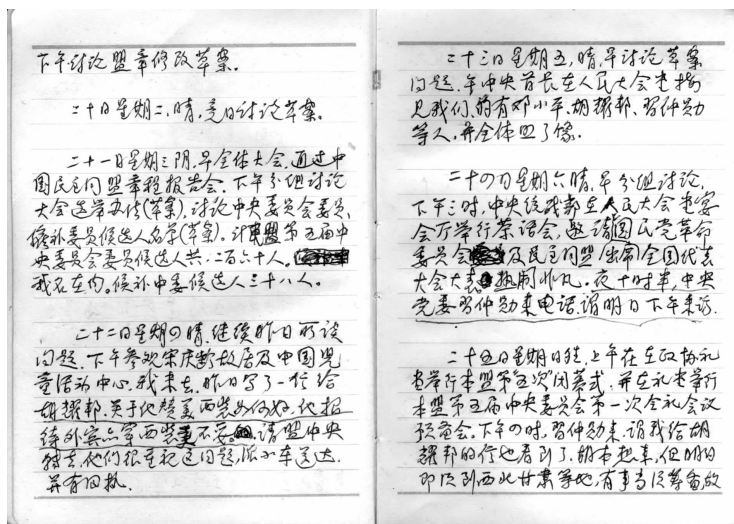 下午讨论盟章修改草案.
二十日星期二,晴,竟日讨论草案.
二十一日星期三阴.早全体大会,通过中
国民主同盟章程报告会.下午分组讨论
大会选举办法(草案),讨论中央委员会委员,
候补委员候选人名单(草案).计盟第五届中
央委员会委员候选人共.二百六十人.
我在内.候补中委候选人三十八人.
二十二日星期四晴.继续昨日所谈
问题.下午参观宋庆龄故居及中国儿
童活动中心.我未去.昨日写了一信给
胡耀邦.关于他赞美西装如何好,他报
待外宾点穿西装不妥.请盟中央
转去.他们很重视这问题,派小车送达.
并有回执.
二十三日星期五,晴,早讨论草案
问题.午中央首长在人民大会堂接
见我们,约有邓小平,胡耀邦,习仲勋
等人,并全体照了像.
二十四日星期六晴,早分组讨论,
下午三时,中央统战部在人民大会堂宴
会厅举行茶话会,邀请国民党革命
委员会及民主同盟出席全国代表
大会代表热闹非凡.夜十时半,中央
党委习仲勋来电话.谓明日下午来访.
二十五日星期日晴,上午在全政协礼
堂举行本盟第五次闭幕式,并在礼堂举行
本盟第五届中央委员会第一次全体会议
预备会.下午四时,习仲勋来,谓我给胡
耀邦的信他看到了,胡本想来,但明日
即须到西北甘肃等地,有事当须筹备,故